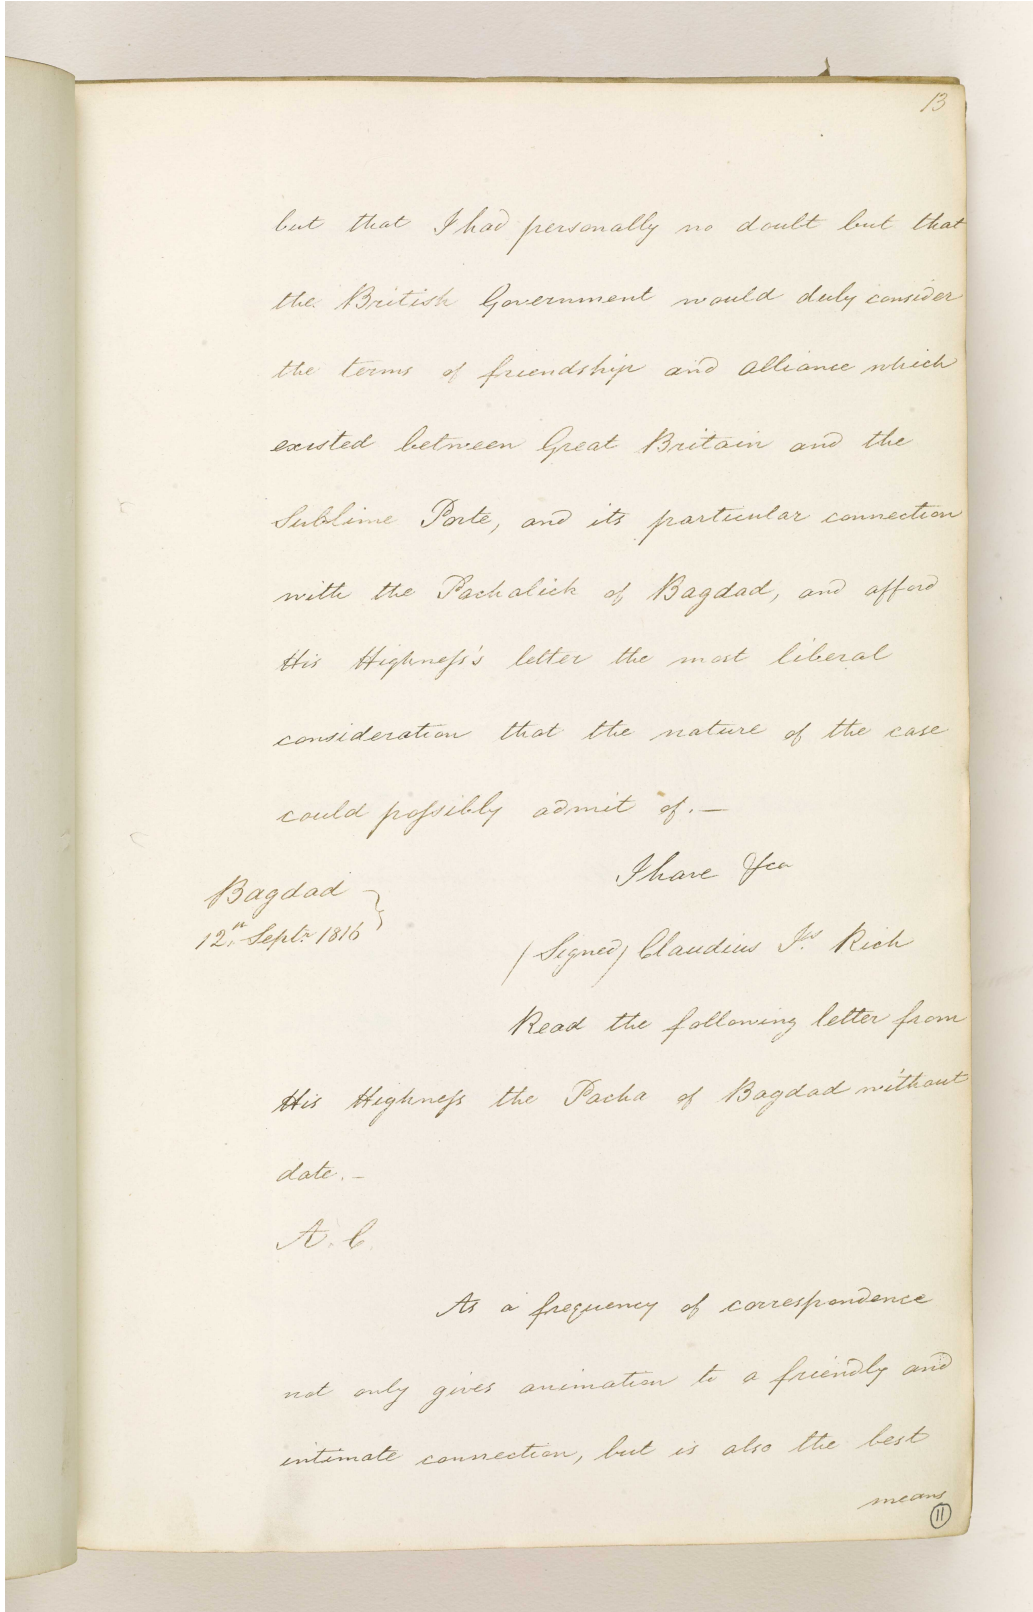 13
but that I had personally no doubt but that
the British Government would duly consider
the terms of friendship and alliance which
existed between Great Britain and the
Sublime Porte, and its particular connection
with the Pachalick of Bagdad, and afford
His Highness's letter the most liberal
consideration that the nature of the case
could possibly admit of. —
I have &ca
Bagdad
12th Septr. 1816
(Signed) Claudius Js. Rich
Read the following letter from
His Highness the Pacha of Bagdad without
date. —
A. C.
As a frequency of correspondence
not only gives animation to a friendly and
intimate connection, but is also the best
means
11